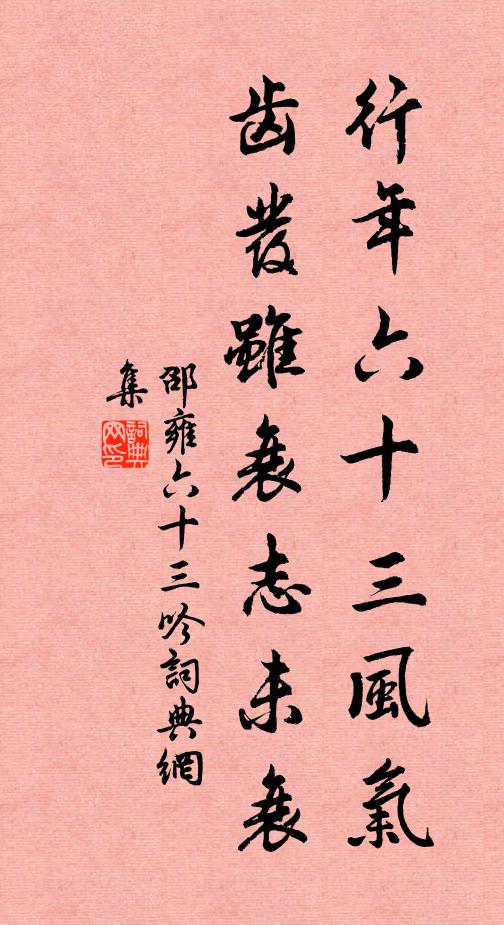 行年六十三風氣
齿發雖衰志未衰
邵雍六十三吟詞典網
集
詞典
网印